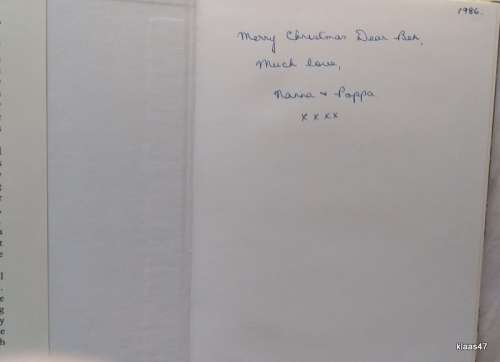 1986.
Merry Christmas Dear Beh,
Much love,
Nanna + Poppa
x x x x
klaas47